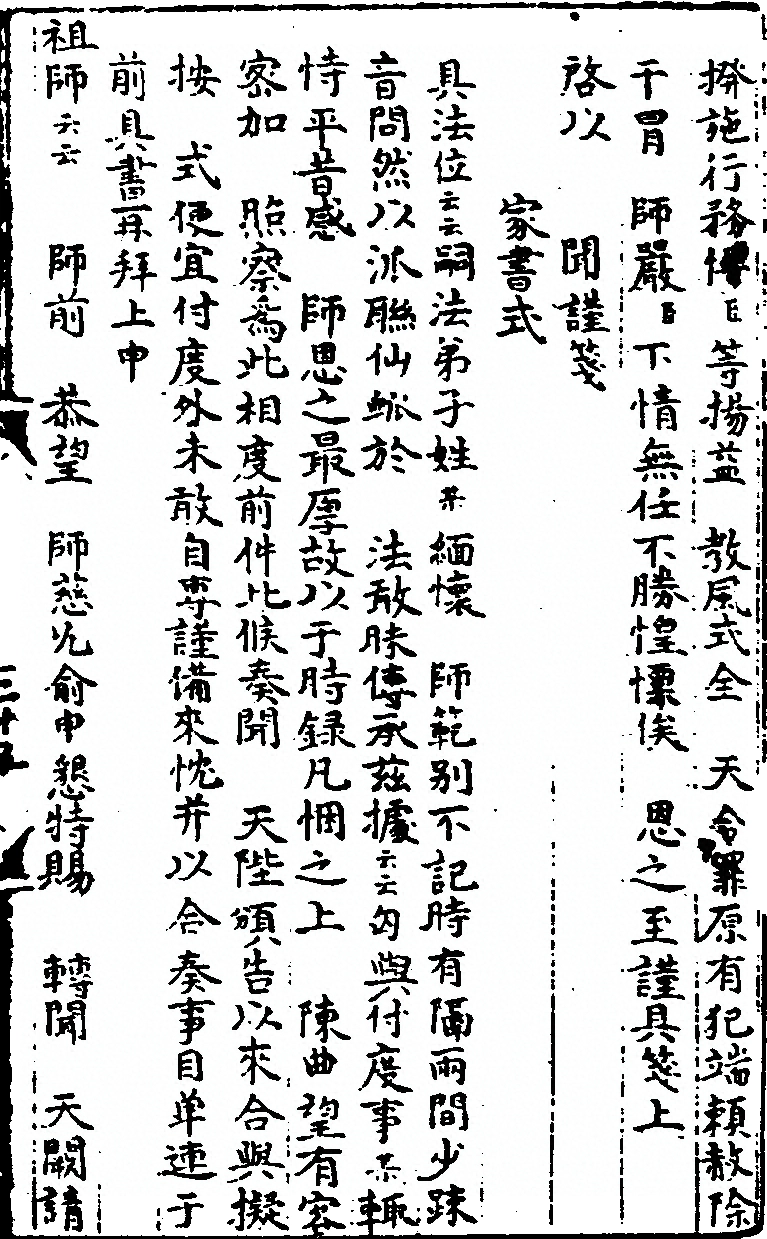 揆施行務俾臣等揚益　教風式全　天命罪原有犯端賴赦除
干冒　師嚴臣下情無任不勝惶慄俟　恩之至謹具箋上
啓以　　聞謹箋
家書式
具法位云云嗣法弟子姓某緬懷　師範別不記時有隔兩間少踈
音問然以派聯仙　於　法敢昧傳承茲據云云匄與付度事某輒
恃平昔感　師恩之最厚故以于時錄凡悃之上　陳曲望有容
察加　照察爲此相度前件比候奏聞　天陛頒告以來合與擬
按　式便宜付度外未敢自專謹備來忱并以合奏事目单連于
前具書再拜上申
祖師云云　師前　恭望　師慈允俞申懇特賜　轉聞　天闕請
三十五